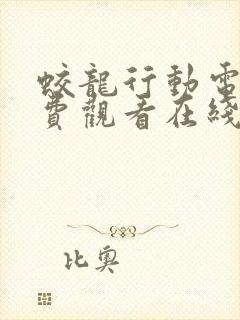 蛟龍行動電
費觀看在綫
比奧